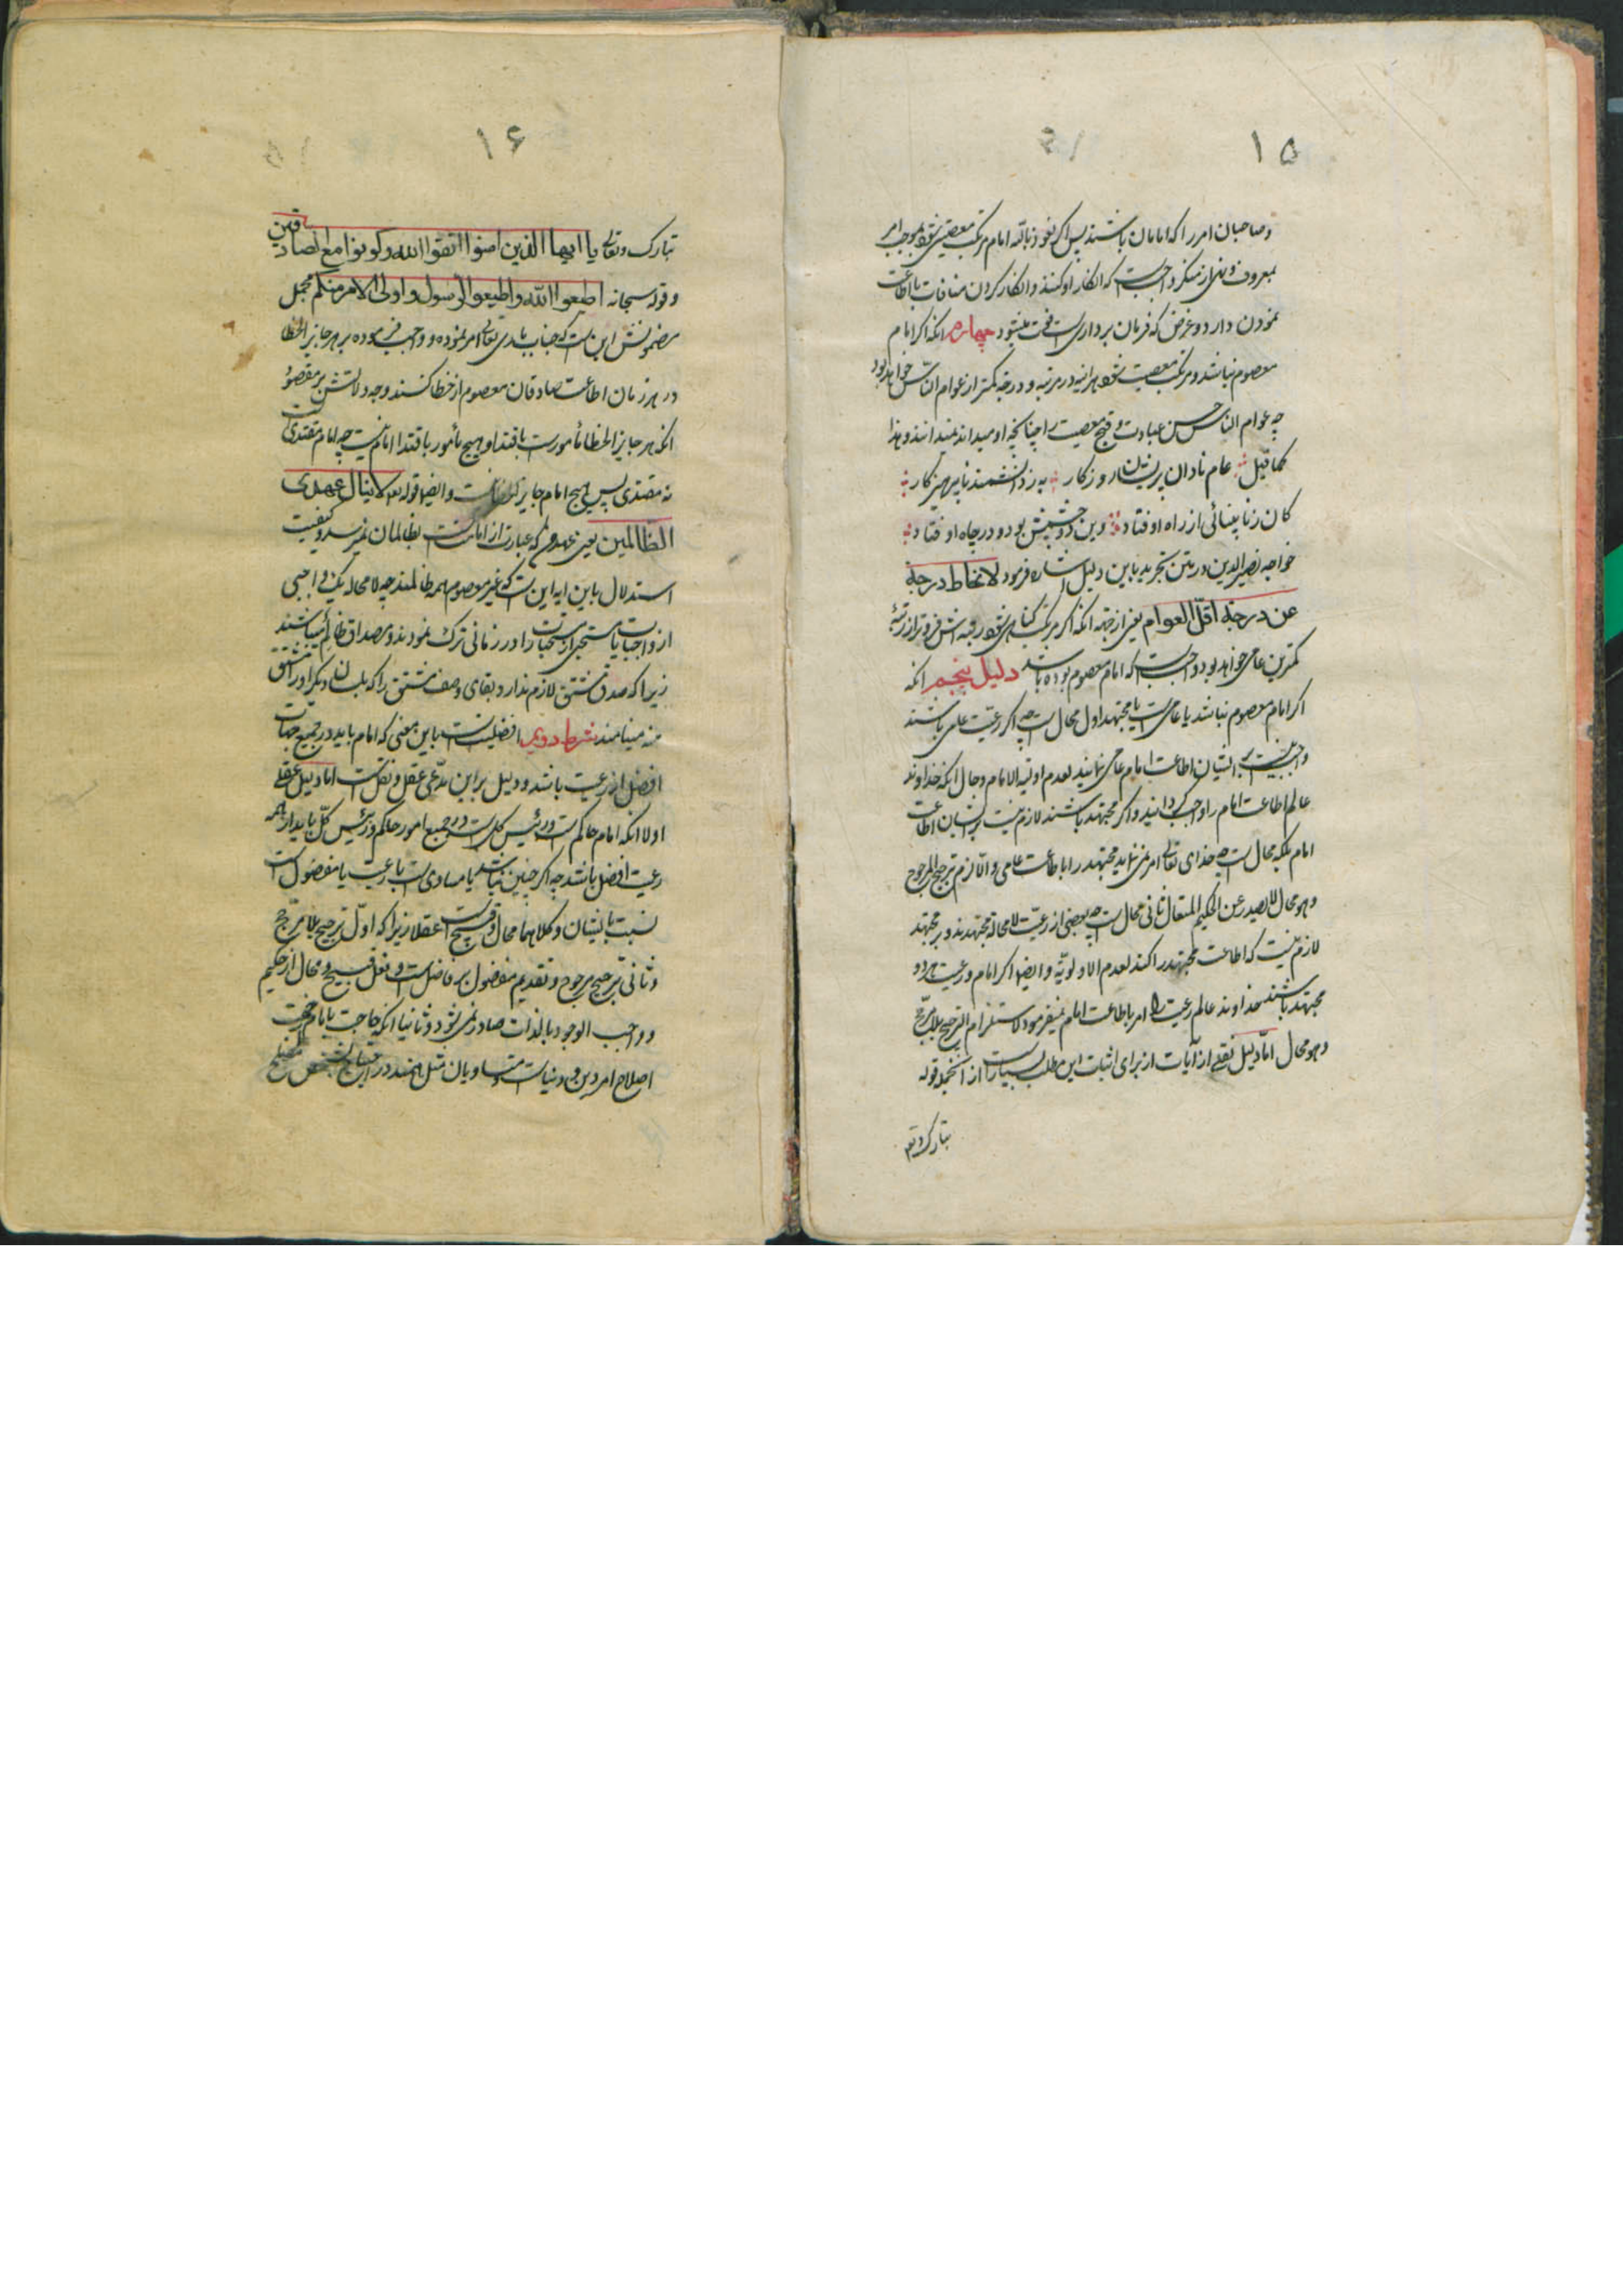 ۱۵
وصاحبان امر را که امامان باشند پس اگر نعوذ بالله امام مرتکب معصیتی شود بموجب امر
بمعروف و نهی از منکر واجب است که انکار او کنند و انکار کردن منافات با اطاعت
نمودن دارد و غرض که فرمان برداریست فوت میشود چهارم انکه اکر امام
معصوم نباشد و مرتکب معصیت شود هراینه در مرتبه و درجه کمتر از عوام الناس خواهد بود
چه عوام الناس حسن عبادت و قبح معصیت را چنانکه او میداند نمیدانند و هذا
کما قیل عام نادان پریشان روزکار به ز دانشمند ناپرهیزکار
کان ز نابینائی از راه اوفتاد وین دو چشمش بود و در چاه اوفتاد
خواجه نصیر الدین در متن تجرید باین دلیل اشاره فرمود لانحطاط درجة
عن درجة اقل العوام یعنی از جهة انکه اکر مرتکب کناهی شود رتبه اش فروتر از رتبهٔ
کمترین عامی خواهد بود و واجب است که امام معصوم بوده باشد دلیل پنجم انکه
اکر امام معصوم نباشد یا عامی است یا مجتهد اول محال است چه اکر رعیت عامی باشند
واجب نیست بر ایشان اطاعت امام عامی نمایند لعدم اولویة الامام و حال انکه خداوند
عالم اطاعت امام را واجب کردانید و اکر مجتهد باشند لازم نیست بر ایشان اطاعت
امام بلکه محال است چه خدای تعالی امر نمی نماید مجتهد را باطاعت عامی و الا لازم ترجیح المرجوح
وهو محال لا یصدر عن الحکیم المتعال ثانی محال است چه بعضی از رعیت لا محاله مجتهدند و بر مجتهد
لازم نیست که اطاعت مجتهد را کند لعدم الاولویّة و ایضا اکر امام و رعیت هر دو
مجتهد باشند خداوند عالم رعیت را امر باطاعت امام نمیفرمود لاستلزام الترجیح بلا مرجح
وهو محال اما دلیل نقلی از آیات از برای اثبات این مطلب بسیار است از انجمله قوله
تبارک وتع
۱۶
تبارک وتعالی یا ایها الذین امنوا اتقوا الله وکونوا مع الصادقین
و قوله سبحانه اطیعوا الله واطیعوا الرسول و اولی الامر منکم مجمل
مضمونش این است که جناب باری تعالی امر نموده و واجب فرموده بر هر جایز الخطا
در هر زمان اطاعت صادقان معصوم از خطا کنند وجه دلالتش بر مقصود
انکه هر جایز الخطا مأمور است باقتدا و هیچ مأمور باقتدا امام نیست چه امام مقتدی است
نه مقتدی پس هیچ امام جایز الخطا نیست و ایضا قوله تع لا ینال عهدی
الظالمین یعنی عهد من که عبارت از امامت است بظالمان نمیرسد و کیفیت
استدلال باین ایه این است که غیر معصوم همه ظالمند چه لا محاله یک واجبی
از واجبات یا مستحبی از مستحبات را در زمانی ترک نمودند و مصداق ظالم میباشند
زیرا که صدق مشتق لازم ندارد بقای وصف مشتق را که بلسان دیکر او را مشتق
منه مینامند شرط دویم افضلیت است باین معنی که امام باید در جمیع جهات
افضل از رعیت باشد و دلیل بر این مدّعی عقل و نقل است اما دلیل عقلی
اولا انکه امام حاکم است و رئیس کل است در جمیع امور و حاکم و رئیس کلّ باید از همه
رعیت افضل باشد چه اکر چنین نباشد یا مساوی است با رعیت یا مفضول است
نسبت بایشان و کلاهما محال و قبیح است عقلا زیرا که اوّل ترجیح بلا مرجّح
و ثانی ترجیح مرجوح و تقدیم مفضول بر فاضل است و فعل قبیح و محال از حکیم
و واجب الوجود بالذات صادر نمی شود و ثانیا انکه حاجت بامام جهت
اصلاح امر دین و دنیاست و متساویان مثل همند در احتیاج بشخص مصلح